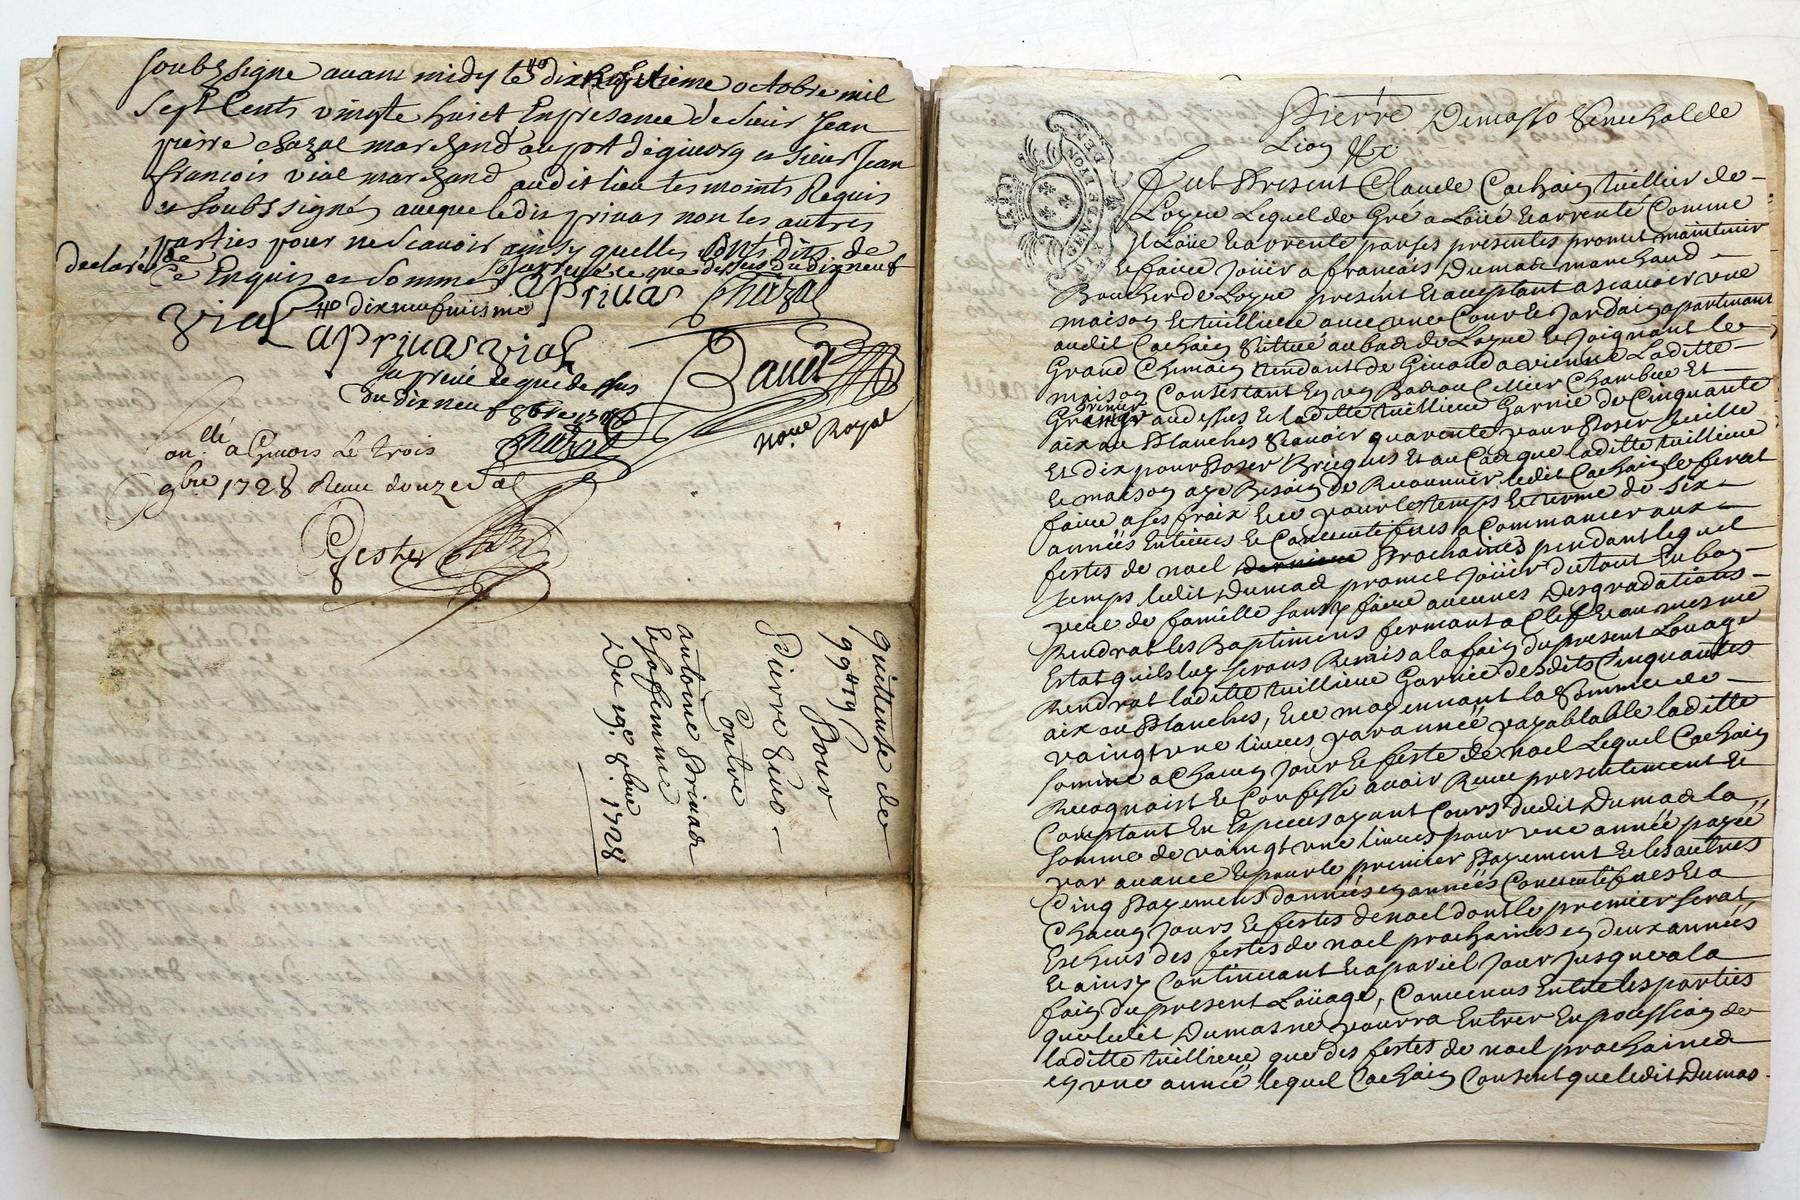 soubzsigne avant midy le dix neufvieme octobre mil
sept Cents vingte huict En presance de sieur Jean
pierre chazal marchand au port de givors et sieur Jean
francois vial marchand audit lieu tesmoints Requis
et soubssignés avecque ledit privas non les autres
parties pour ne scavoir ainsy quelles ont dits de
declaré
ce Enquis et sommés
aprivas Chazal
vial
dixneufviesme
aprivas vial
Japreuve ce que dessus
du dix neuf 8bre
Chazal
Bauet
no.re Royal
con.llé a Givors Le trois
9bre 1728 Receu douze sol
quittense de
99 ₶ 19 s
Pour
Pierre Guo
Contre
antoine Privas
et sa femme
Du 19.e 8bre 1728
Pierre Dumas Senechal de
Lion &c
GEN DE LYON
fut Present Claude Cachain tuillier de
Loyre Lequel de Gré a Loüé Et arrenté Comme
Il Loüe Et arrente par ses presentes promet maintenir
Et faire Joüir a francois Dumas marchand
Boucher de Loyre present Et acceptant ascavoir une
maison Et tuilliere avec une Cour Et Jardain apartenant
audit Cachain Sittué au bas de Loyre Et Joignant le
Grand Chemain tendant de Givord a vienne Laditte
maison Consistant En un Bas ou Cellier Chambre Et
Grenier
au dessus Et laditte tuilliere Garnie de Cinquante
aix ou Planches Scavoir quarente pour Poser tieille
Et Dix pour Poser Bricques Et au Cas que laditte tuilliere
Et maison aye Besoin de Racommer ledit Cachain le ferat
faire a ses fraix Et ce pour le temps Et terme de six
années Entieres Et Consecutifves a Commancer aux
festes de noel Prochaines pendant lequel
temps ledit Dumas promet Joüir du tout En bon
pere de famille sans y faire aucunes Desgradations
Rendrat les Baptimens fermant a Clef Et au mesme
Estat quils luy serons Remis a la fain du present Louage
Rendrat laditte tuilliere Garnie desdits Cinquantes
aix ou Planches, Et ce moyennant la Somme de
vaingt une livres par année payablable laditte
somme a Chacun Jour Et feste de noel Lequel Cachain
Recognoist Et Confesse avoir Receu presentement Et
Comptant En Especes ayant Cours dudit Dumas la
somme de vaingt une livres pour une année payée
par avance Et pour le premier Payement Et les autres
Cinq Payemens d'années en années Consecutifves Et a
Chacun Jours Et festes de noel dont le premier serat
Escheus des festes de noel prochaines en deux années
Et ainsy Continuant Et a pareil Jour Jusques a la
fain du present Loüage, Convenus Entre les parties
que ledit Dumas ne pourra Entrer En possession de
laditte tuilliere que des festes de noel prochaines
en une année lequel Cachain Consent que ledit Dumas